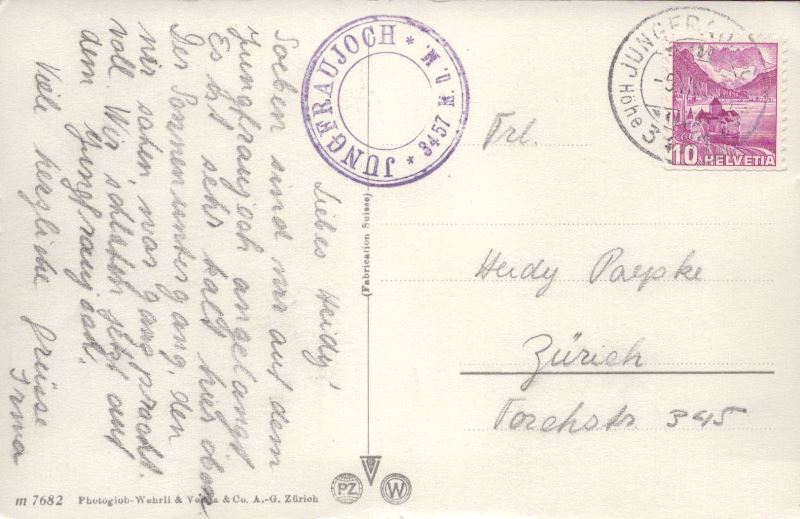 Liebes Heidy!
Soeben sind wir auf dem
Jungfraujoch angelangt.
Es ist sehr kalt hier oben
Der Sonnenuntergang, den
wir sahen, war ganz pracht-
voll. Wir schlafen jetzt auf
dem Jungfraujoch.
Viele herzliche Grüsse
Irma
JUNGFRAUJOCH * 3457 M.Ü.M. *
JUNGFRAU
Höhe 3
10 HELVETIA
Frl.
Heidy Paepke
Zürich
Forchstr 345
(Fabrication Suisse)
PZ W
m 7682 Photoglob-Wehrli & & Co. A.-G. Zürich